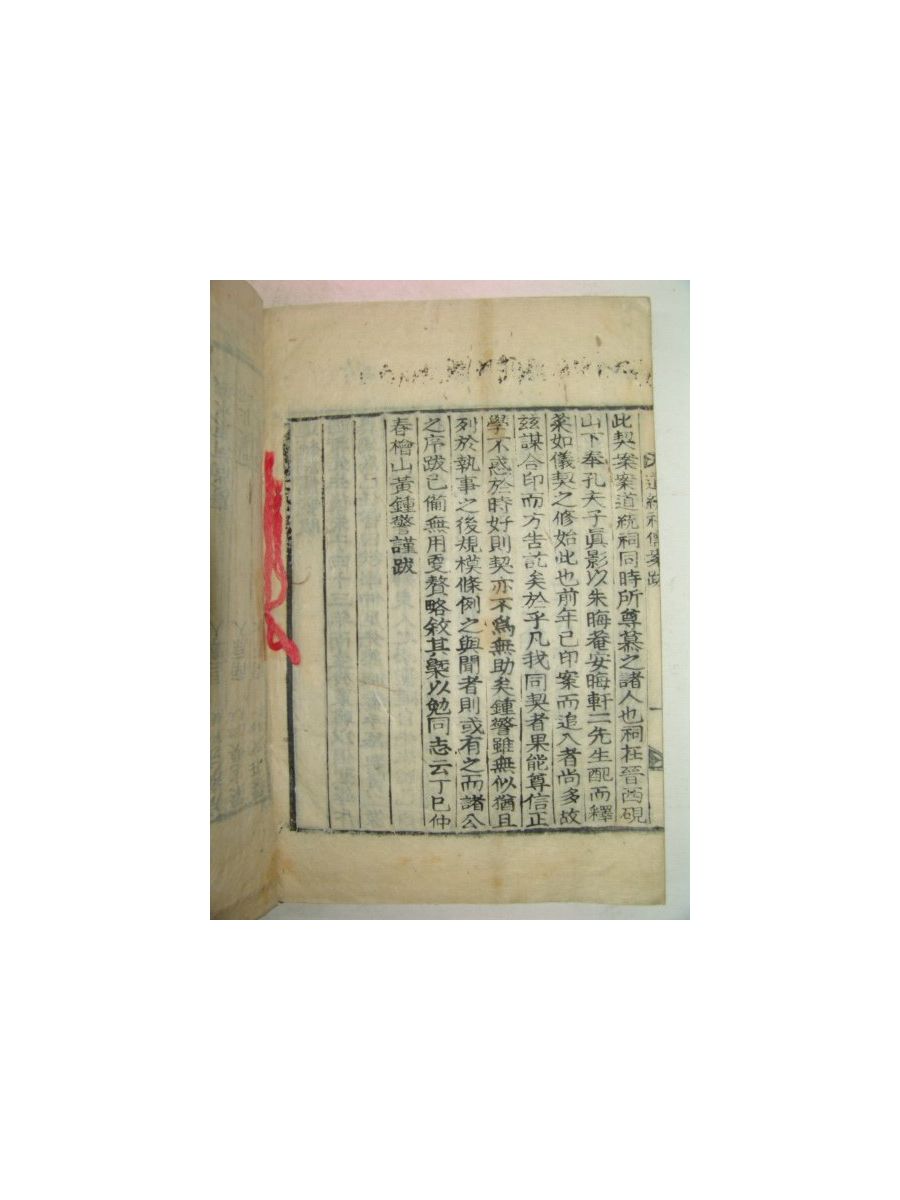 道統祠儒契跋
此契案案道統祠同時所尊慕之諸人也祠在晉西硯
山下奉孔夫子眞影以朱晦菴安晦軒二先生配而釋
菜如儀契之修始此也前年已印案而追入者尚多故
玆謀合印而方告訖矣於乎凡我同契者果能尊信正
學不惑於時好則契亦不爲無助矣鍾瀅雖無似猶且
列於執事之後規模條例之與聞者則或有之而諸公
之序跋已備無用更贅略敘其槩以勉同志云丁巳仲
春檜山黃鍾瀅謹跋